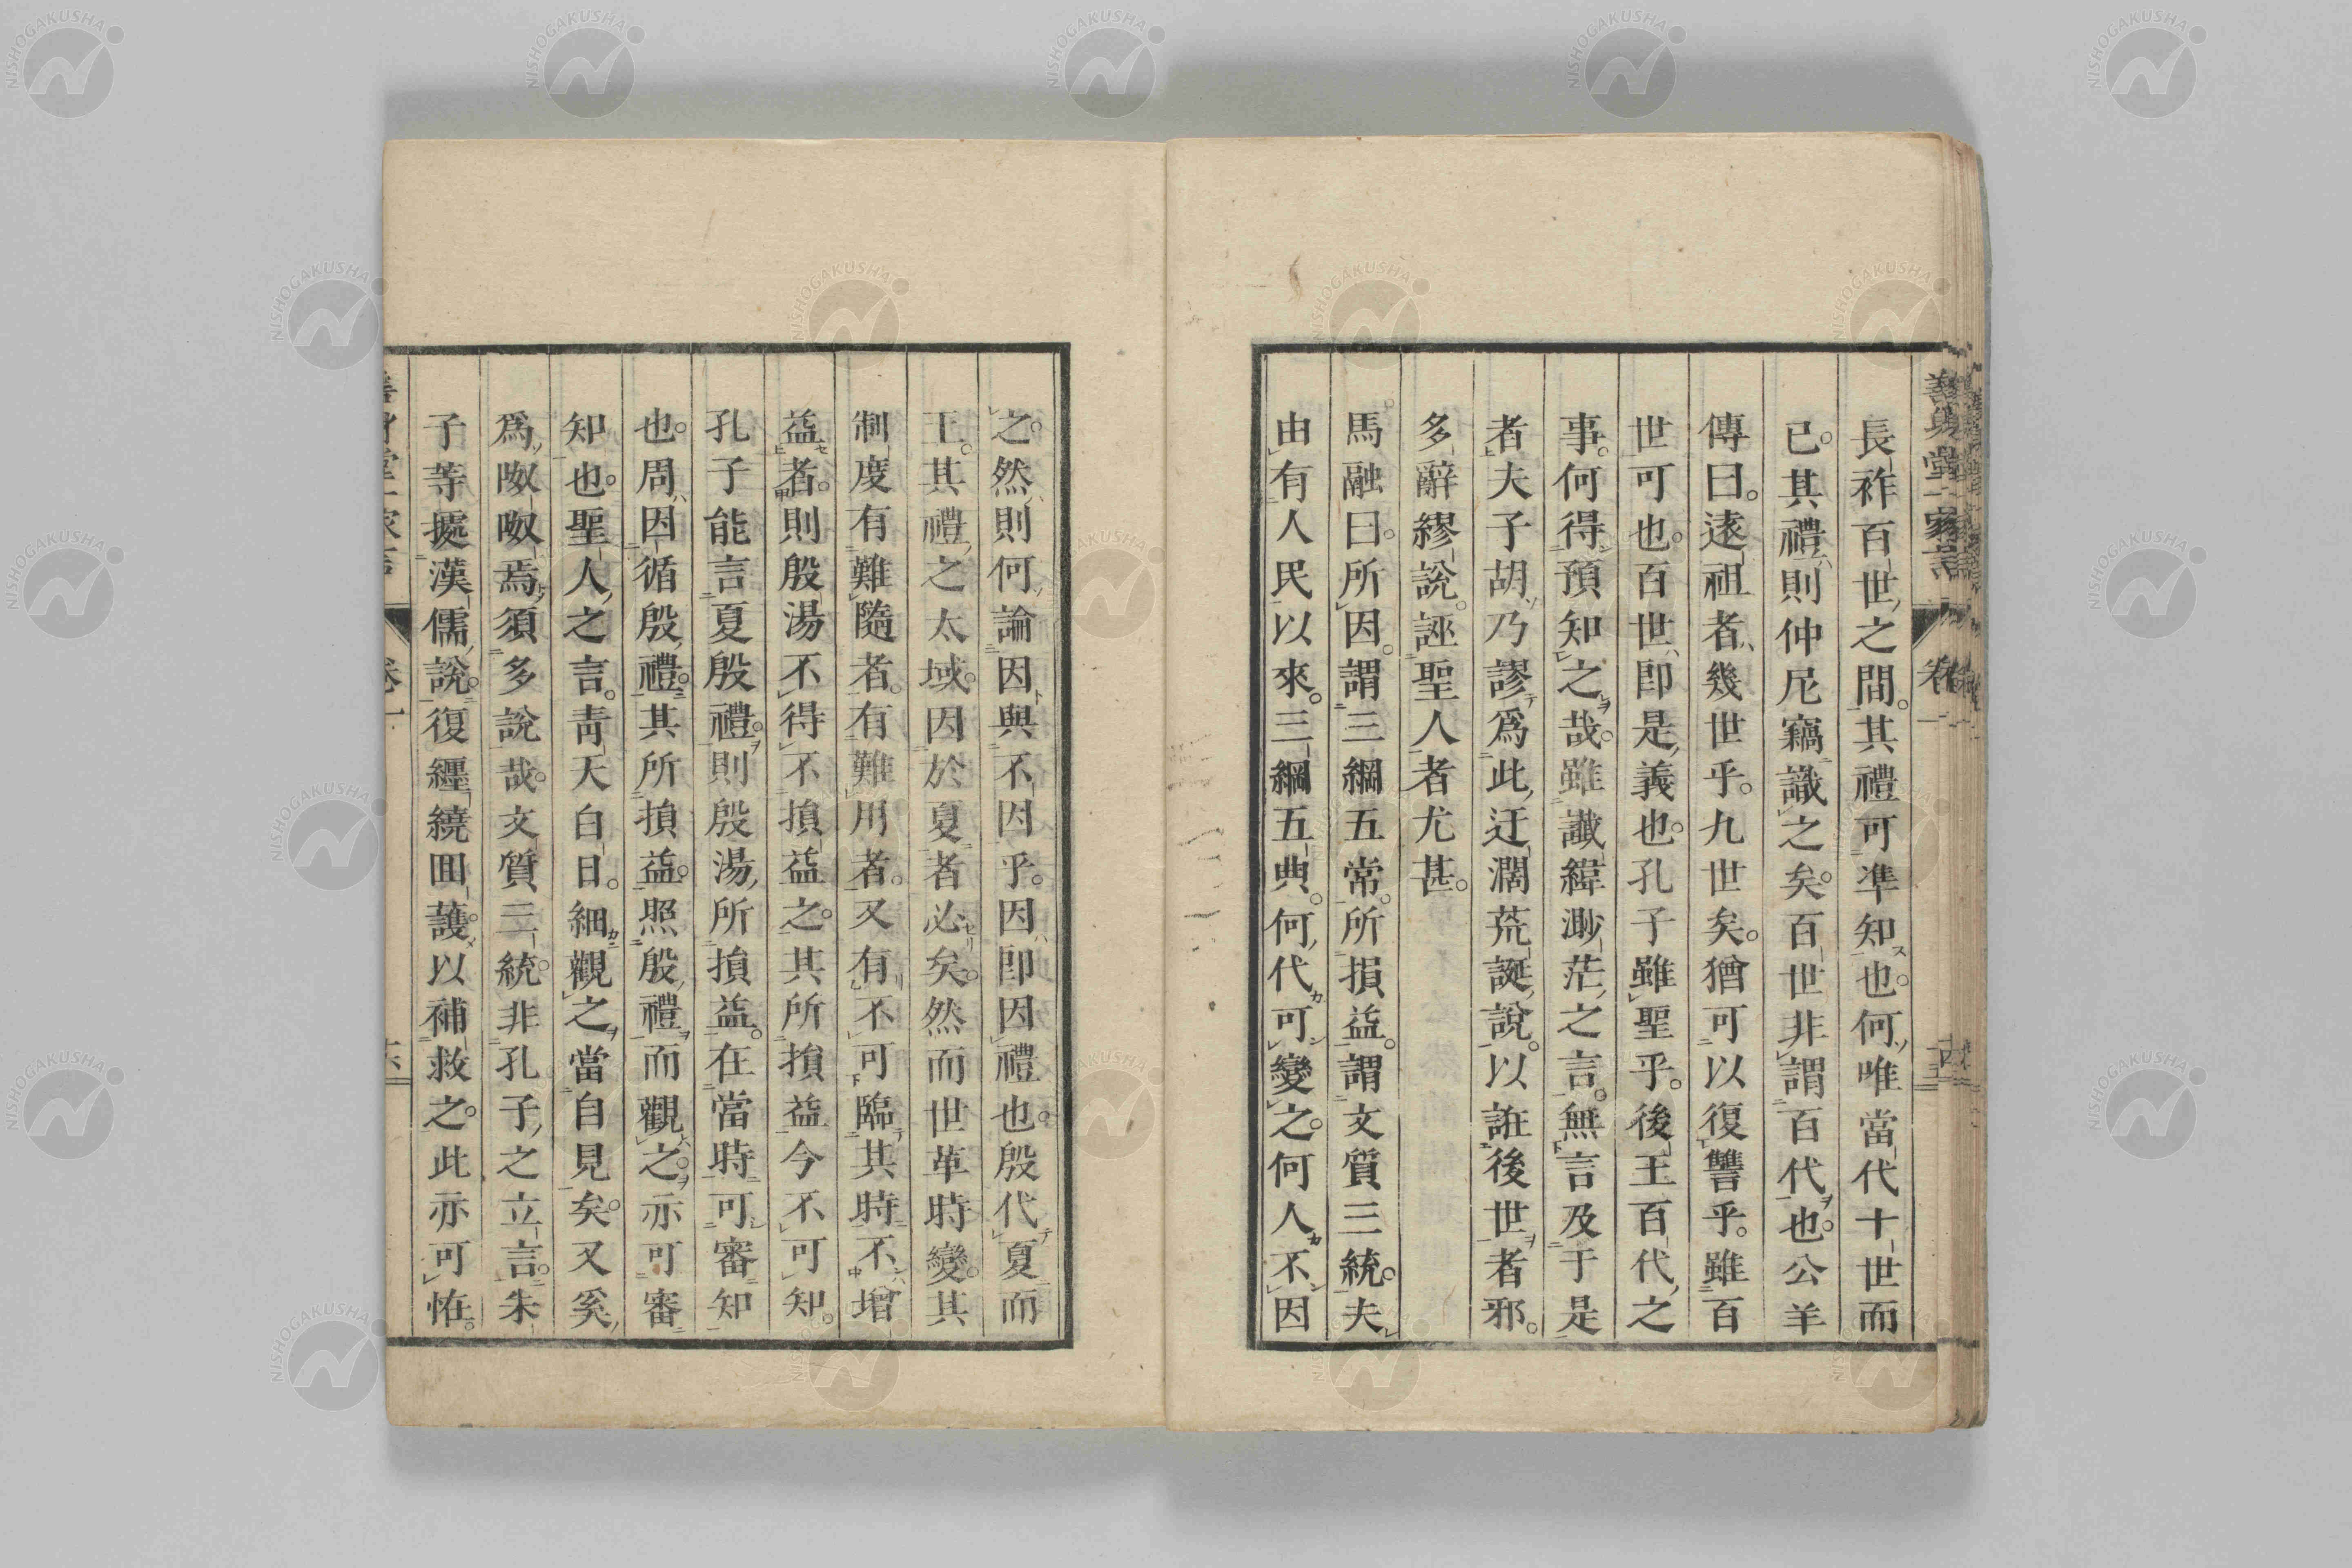 長祚百世之間。其禮可準知也。何唯當代十世而
已。其禮則仲尼竊識之矣。百世非謂百代也。公羊
傳曰。遠祖者幾世乎。九世矣。猶可以復讐乎。雖百
世可也。百世即是義也。孔子雖聖乎。後王百代之
事。何得預知之哉。雖讖緯渺茫之言。無言及于是
者。夫子胡乃謬爲此迂濶荒誕說。以誑後世者邪。
多辭繆說。誣聖人者尤甚。
馬融曰。所因。謂三綱五常。所損益。謂文質三統。夫
由有人民以來。三綱五典。何代可變之。何人不因
之。然則何論因與不因乎。因即因禮也。殷代夏而
王。其禮之大域。因於夏者必矣。然而世革時變。其
制度有難隨者。有難用者。又有不可臨其時不增
益者。則殷湯不得不損益之。其所損益今不可知。
孔子能言夏殷禮。則殷湯所損益。在當時可審知
也。周因循殷禮。其所損益。照殷禮而觀之。亦可審
知也。聖人之言。青天白日。細觀之當自見矣。又奚
爲呶呶焉須多說哉。文質三統。非孔子之立言。朱
子等據漢儒說。復纒繞囬護。以補救之。此亦可恠。
卷一
NISHOGAKUSHA